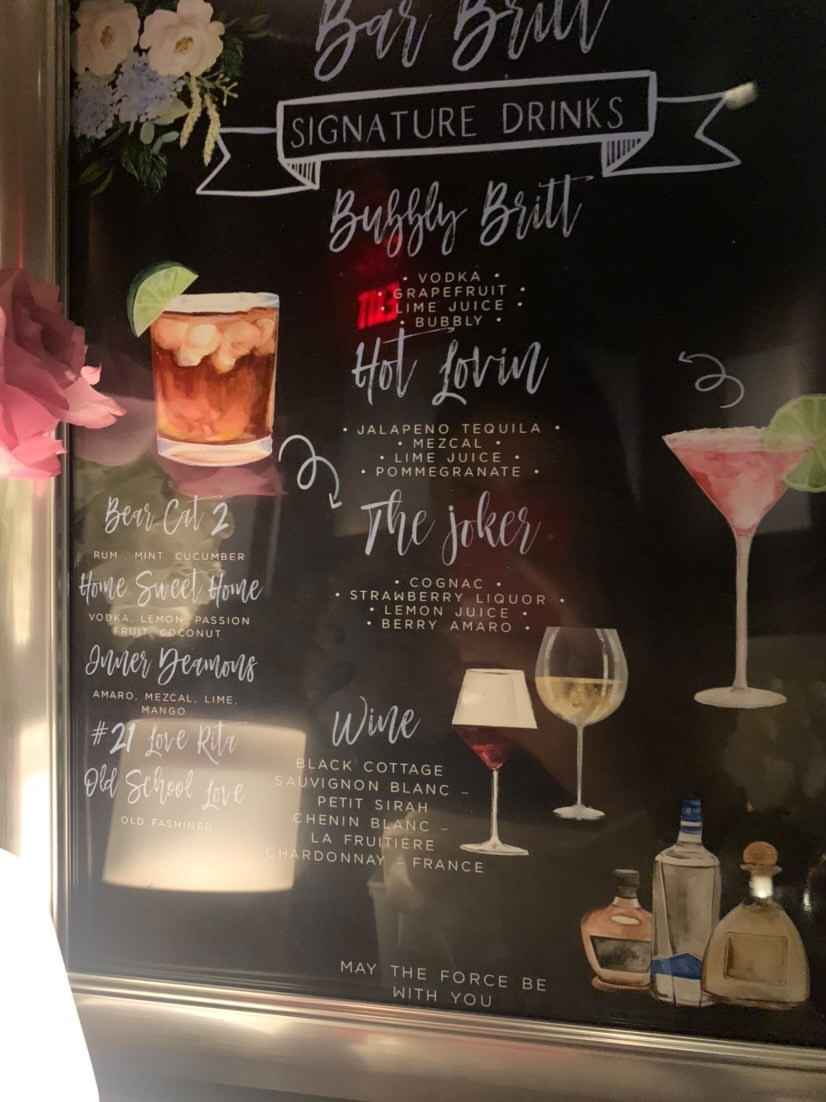 Bar Britt
SIGNATURE DRINKS
Bubbly Britt
• VODKA •
• GRAPEFRUIT •
• LIME JUICE •
• BUBBLY •
Hot Lovin
• JALAPENO TEQUILA •
• MEZCAL •
• LIME JUICE •
• POMMEGRANATE •
The Joker
• COGNAC •
• STRAWBERRY LIQUOR •
• LEMON JUICE •
• BERRY AMARO •
Bear Cat 2
RUM, MINT, CUCUMBER
Home Sweet Home
VODKA, LEMON, PASSION
FRUIT, COCONUT
Inner Deamons
AMARO, MEZCAL, LIME,
MANGO
#21 Love Rita
Old School Love
OLD FASHINED
Wine
BLACK COTTAGE
SAUVIGNON BLANC –
PETIT SIRAH
CHENIN BLANC –
LA FRUITIÈRE
CHARDONNAY – FRANCE
MAY THE FORCE BE
WITH YOU